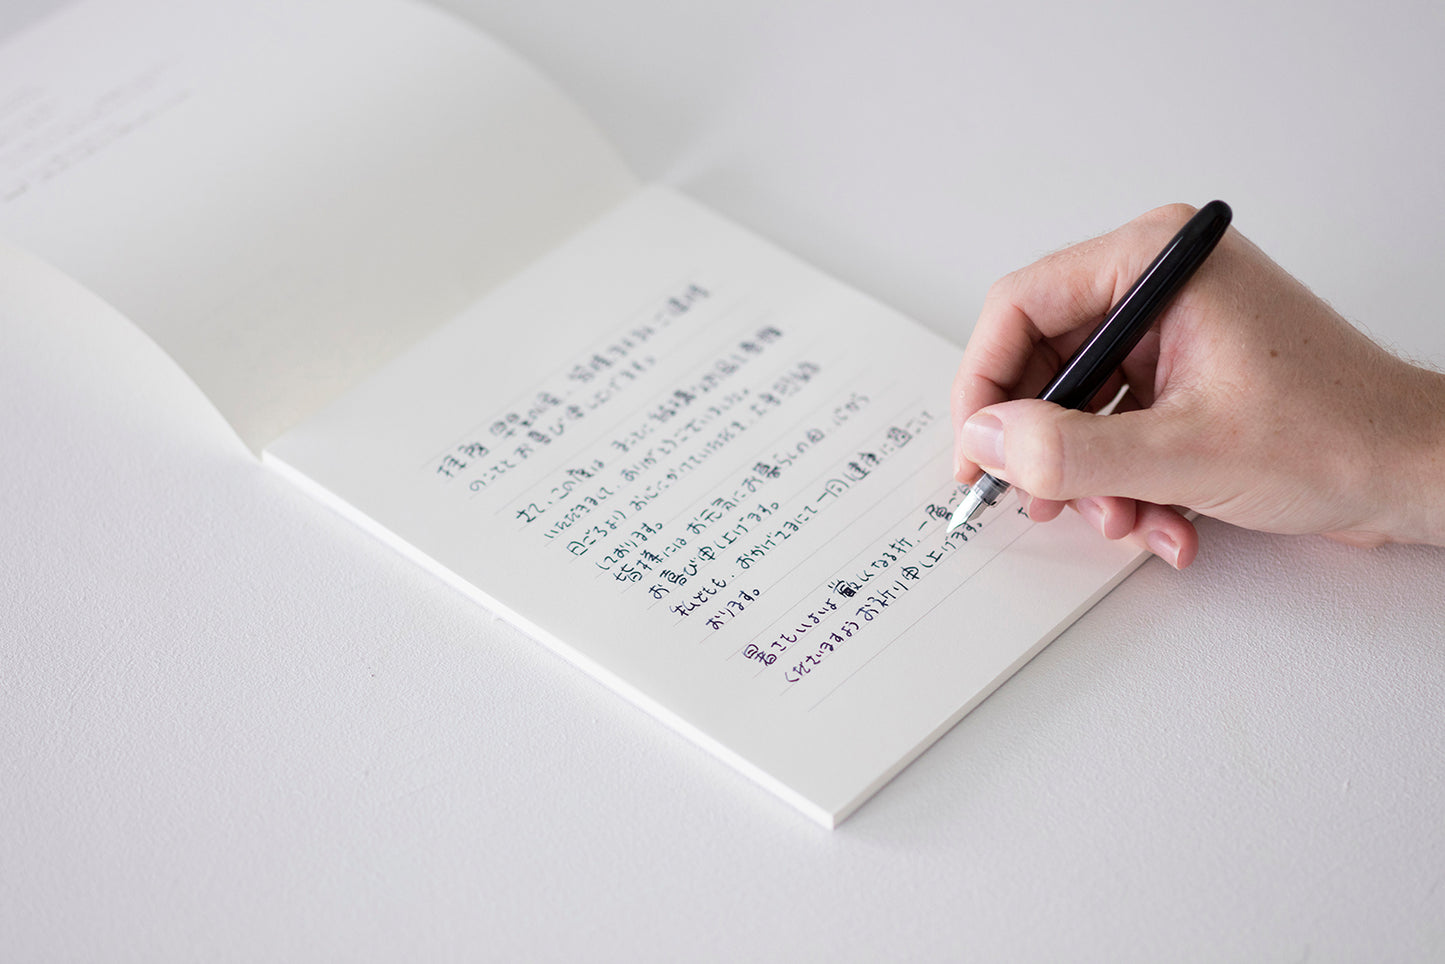 拝啓
のこととお喜び申し上げます。
さて、この度は、まことに結構なお品を
いただきまして、ありがとうございました。
日ごろより お心にかけていただき、
しております。
皆様には お元気にお暮らしの由、心から
お喜び申し上げます。
私どもも、おかげさまにて 一同 健康に過ごして
おります。
暑さもいよいよ 厳しくなる折、一層ご
くださいますよう お祈り申し上げます。